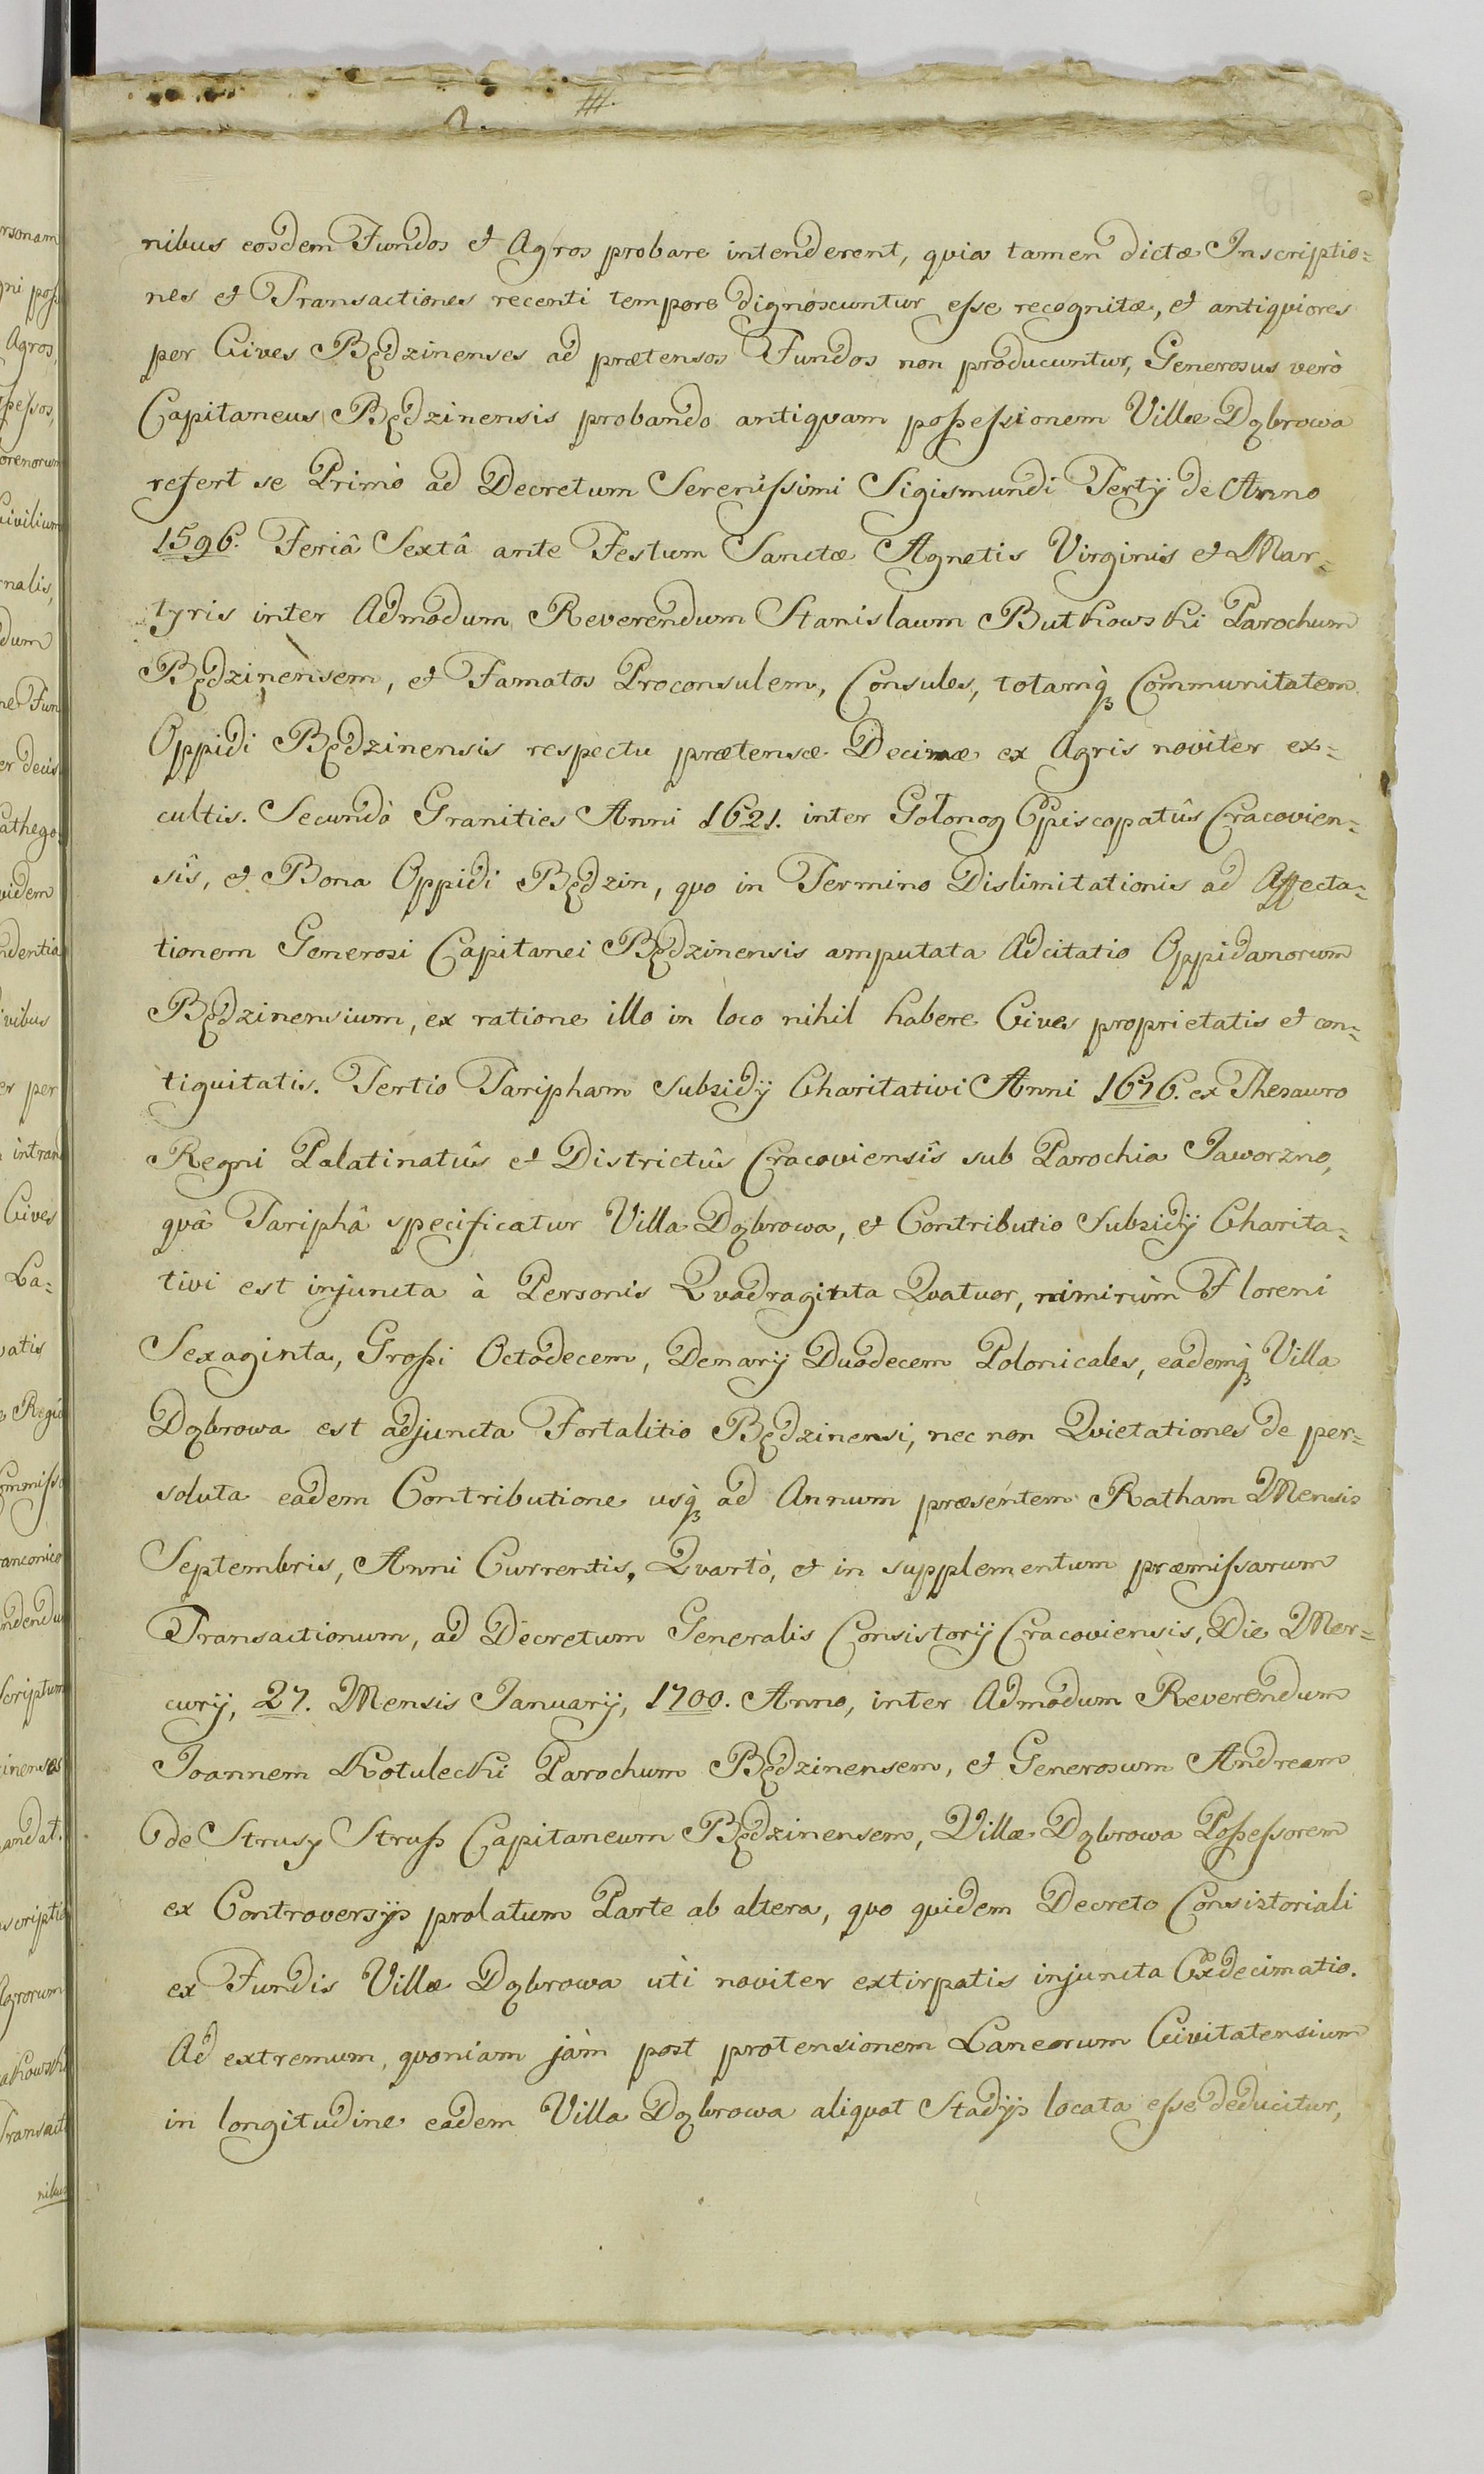 nibus eosdem Fundos et Agros probare intenderent, qvia tamen dictæ Inscriptio=
nes et Transactiones recenti tempore dignoscuntur eſse recognitæ, et antiqviores
per Cives Będzinenses ad prætensos Fundos non producuntur, Generosus verò
Capitaneus Będzinensis probando antiqvam poßeſsionem Villæ Dąbrowa
refert se Primò ad Decretum Sereniſsimi Sigismundi Tertÿ de Anno
1596. Feriâ Sextâ ante Festum Sanctæ Agnetis Virginis et Mar=
tyris inter Admodum Reverendum Stanislaum Butkowski Parochum
Będzinensem, et Famatos Proconsulem, Consules, totamq́ꝫ Communitatem
Oppidi Będzinensis respectu prætensæ Decimæ ex Agris noviter ex=
cultis. Secundò Granities Anni 1621. inter Gołonog Episcopatûs Cracovien=
sîs, et Bona Oppidi Będzin, qvo in Termino Dislimitationis ad Affecta=
tionem Generosi Capitanei Będzinensis amputata Adcitatio Oppidanorum
Będzinensium, ex ratione illo in loco nihil habere Cives proprietatis et con=
tiguitatis. Tertio Taripham Subsidÿ Charitativi Anni 1676. ex Thesauro
Regni Palatinatûs et Districtûs Cracoviensîs sub Parochia Jaworzno,
qvâ Tariphâ specificatur Villa Dąbrowa, et Contributio Subsidÿ Charita=
tivi est injuncta à Personis Qvadraginta Qvatuor, nimirùm Floreni
Sexaginta, Großi Octodecem, Denarÿ Duodecem Polonicales, eademq́ꝫ Villa
Dąbrowa est adjuncta Fortalitio Będzinensi, nec non Qvietationes de per=
soluta eadem Contributione usq́ꝫ ad Annum præsentem Ratham Mensis
Septembris, Anni Currentis. Qvartò, et in supplementum præmiſsarum
Transactionum, ad Decretum Generalis Consistorÿ Cracoviensis, Die Mer=
curÿ, 27. Mensis Januarÿ, 1700. Anno, inter Admodum Reverendum
Joannem Kotulecki Parochum Będzinensem, et Generosum Andream
de Strusy Struß Capitaneum Będzinensem, Villæ Dąbrowa Poßeſsorem
ex Controversÿs prolatum Parte ab altera, qvo qvidem Decreto Consistoriali
ex Fundis Villæ Dąbrowa uti noviter extirpatis injuncta Exdecimatio.
Ad extremum, qvoniam jàm post protensionem Laneorum Civitatensium
in longitudine eadem Villa Dąbrowa aliqvot Stadÿs locata eſse deducitur,